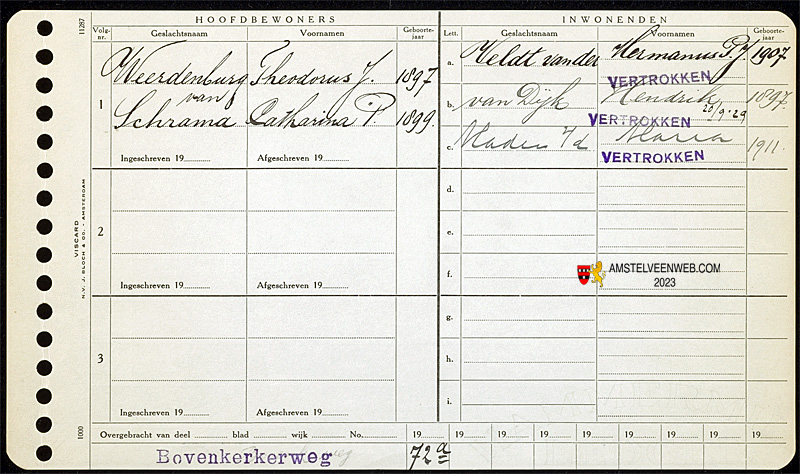 HOOFDBEWONERS
INWONENDEN
11287
Volg-
nr.
Geslachtsnaam
Voornamen
Geboorte-
jaar
Lett.
Geslachtsnaam
Voornamen
Geboorte-
jaar
1
Weerdenburg Theodorus J. 1897
van
Schrama Catharina P. 1899.
Ingeschreven 19
Afgeschreven 19
a. Veldt van der Hermanus P. J. 1907
VERTROKKEN
b. van Dijk Hendrik 1897.
20/9-29
VERTROKKEN
c. Maria 1911.
VERTROKKEN
2
Ingeschreven 19
Afgeschreven 19
d.
e.
f.
AMSTELVEENWEB.COM
2023
3
Ingeschreven 19
Afgeschreven 19
g.
h.
i.
VISCARD
N.V. J. BLOCH & CO. - AMSTERDAM
1000
Overgebracht van deel blad wijk No. 19 19 19 19 19 19 19 19 19 19
Bovenkerkerweg 72a